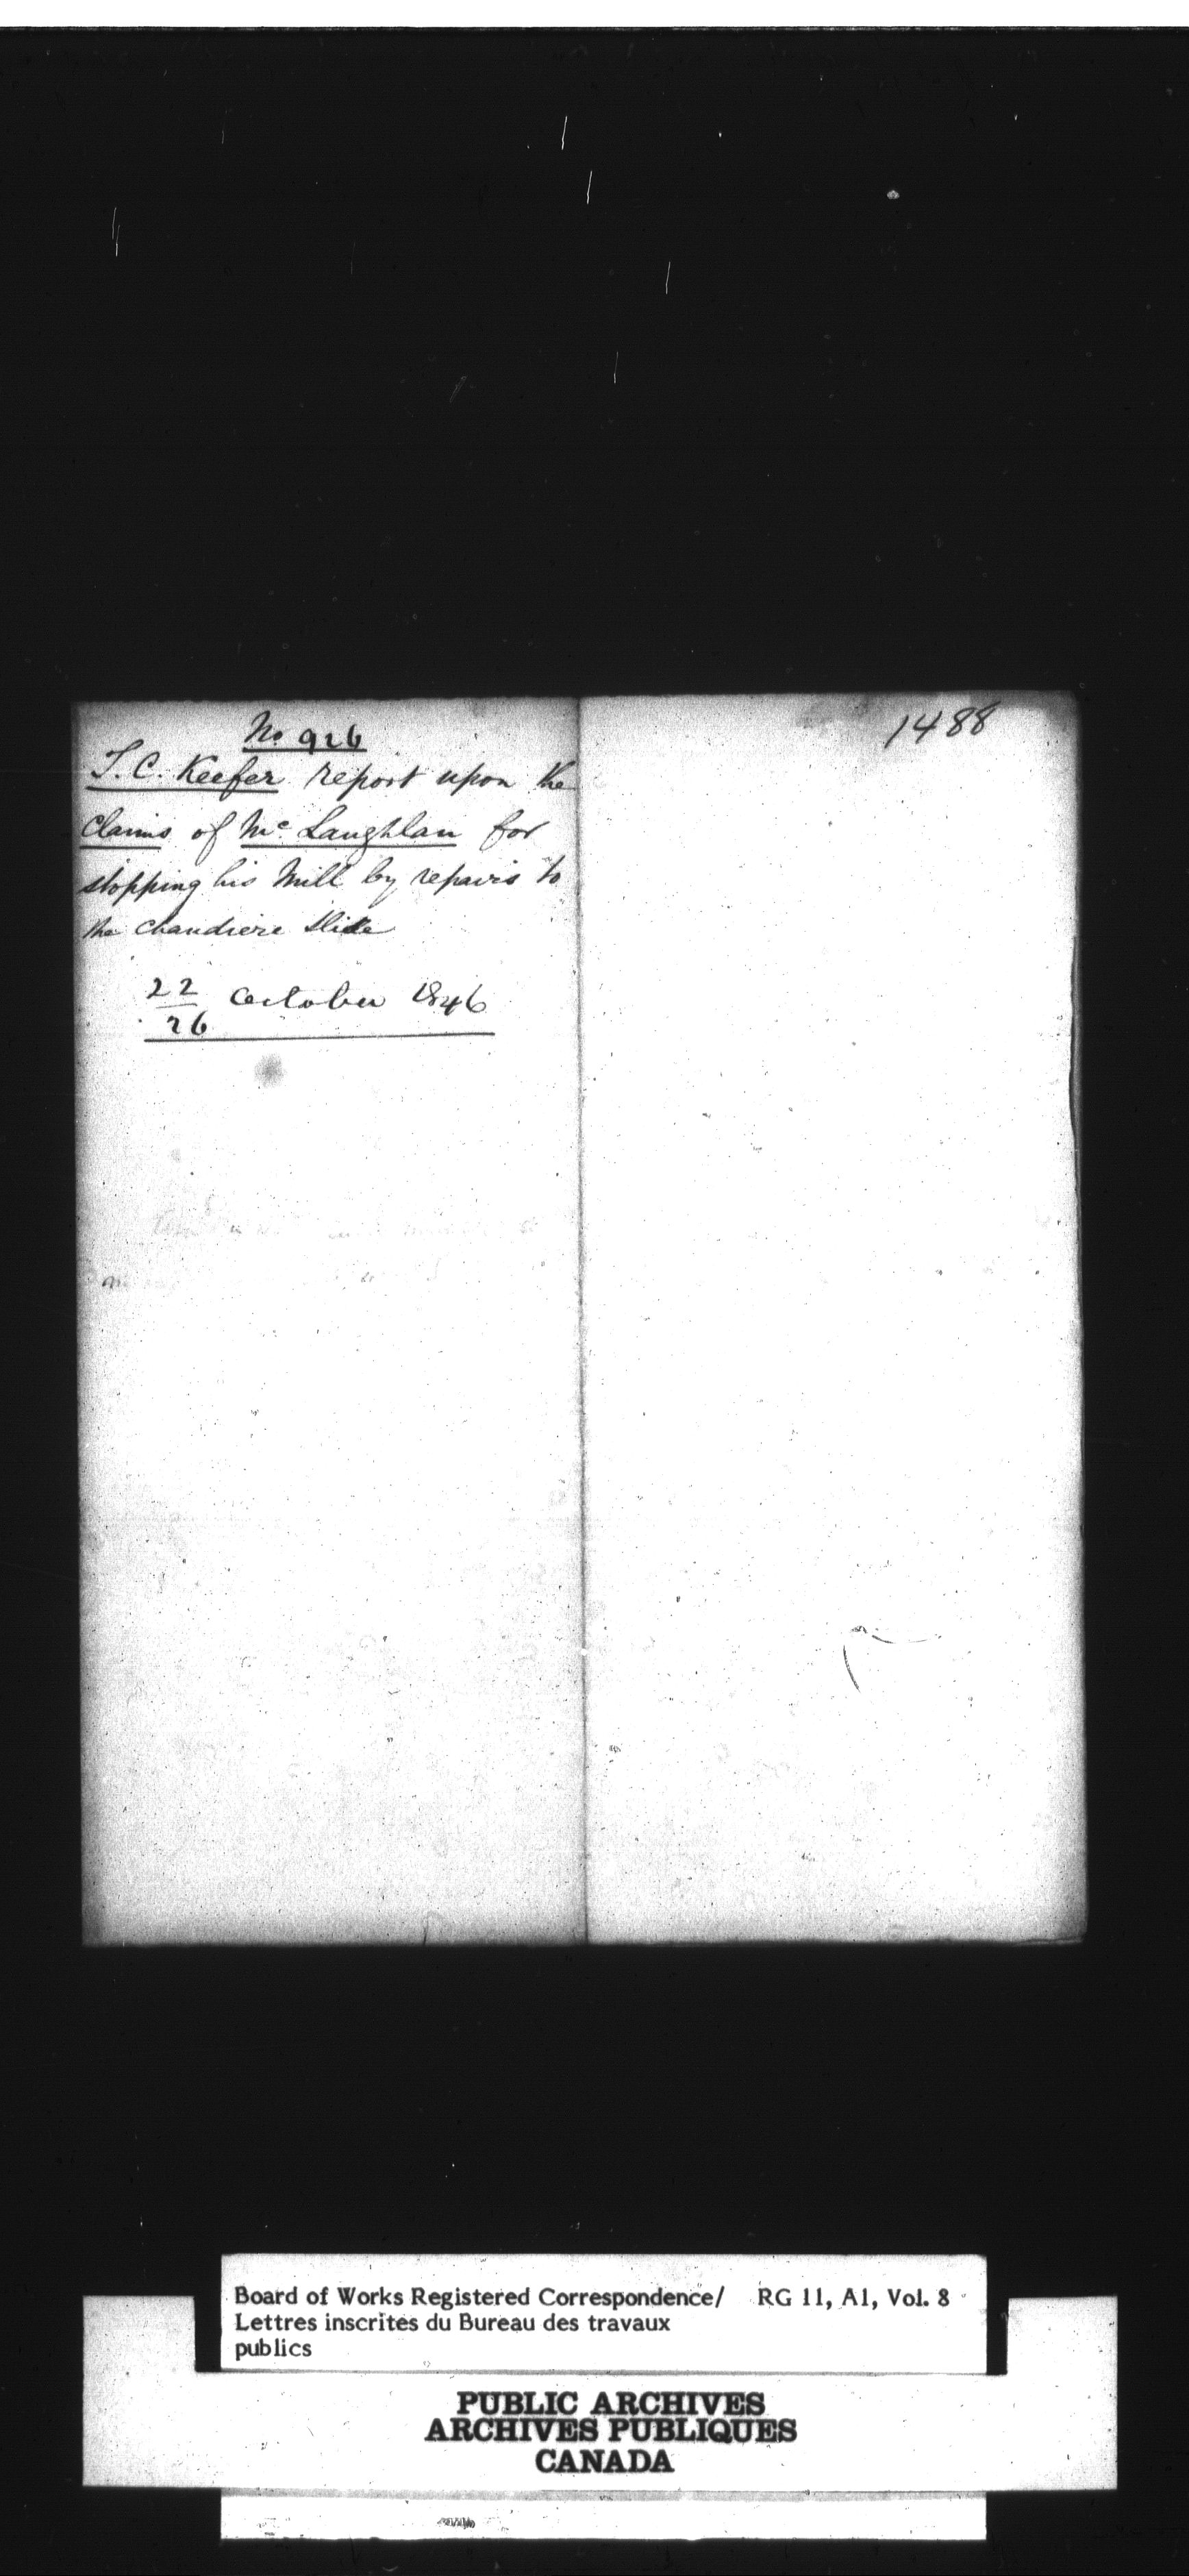 No. 926
T. C. Keefer report upon the
Claims of Mc Laughlan for
stopping his Mill by repairs to
the Chaudiere Slide
22
26 October 1846
1488
Board of Works Registered Correspondence/ RG 11, A1, Vol. 8
Lettres inscrites du Bureau des travaux
publics
PUBLIC ARCHIVES
ARCHIVES PUBLIQUES
CANADA